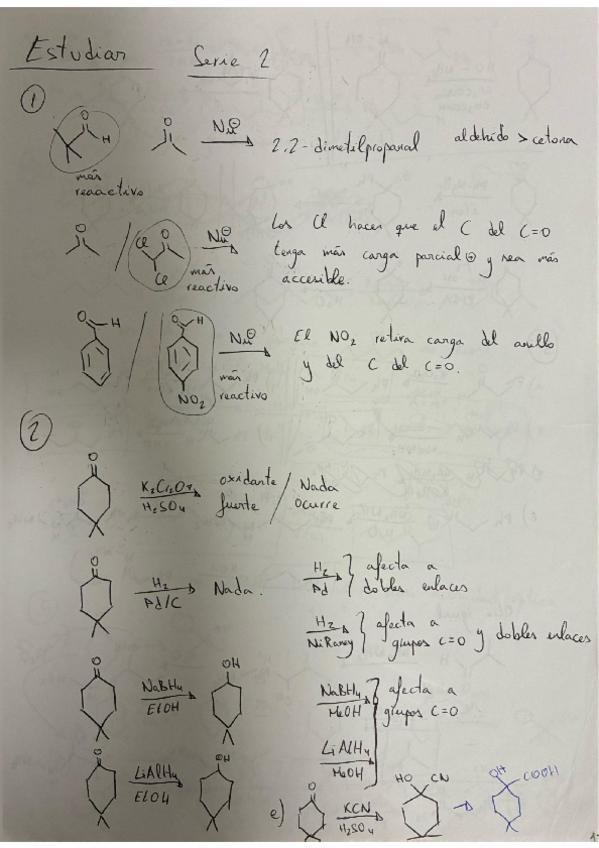 Estudiar Serie 2
1
O
H
O
Nu⊖
2,2-dimetilpropanal aldehído > cetona
más
reaactivo
O
/
Cl O
Cl
Nu⊖
más
reactivo
Los Cl hacen que el C del C=O
tenga más carga parcial ⊕ y sea más
accesible.
O H
/
O H
NO2
Nu⊖
más
reactivo
El NO2 retira carga del anillo
y del C del C=O.
2
O
K2Cr2O7
H2SO4
oxidante
fuerte
/ Nada
ocurre
O
H2
Pd/C
Nada.
H2
Pd
} afecta a
dobles enlaces
H2
NiRaney
} afecta a
grupos C=O y dobles enlaces
O
NaBH4
EtOH
OH
NaBH4
MeOH
} afecta a
grupos C=O
O
LiAlH4
EtOH
OH
LiAlH4
MeOH
e)
O
KCN
H2SO4
HO CN
OH COOH